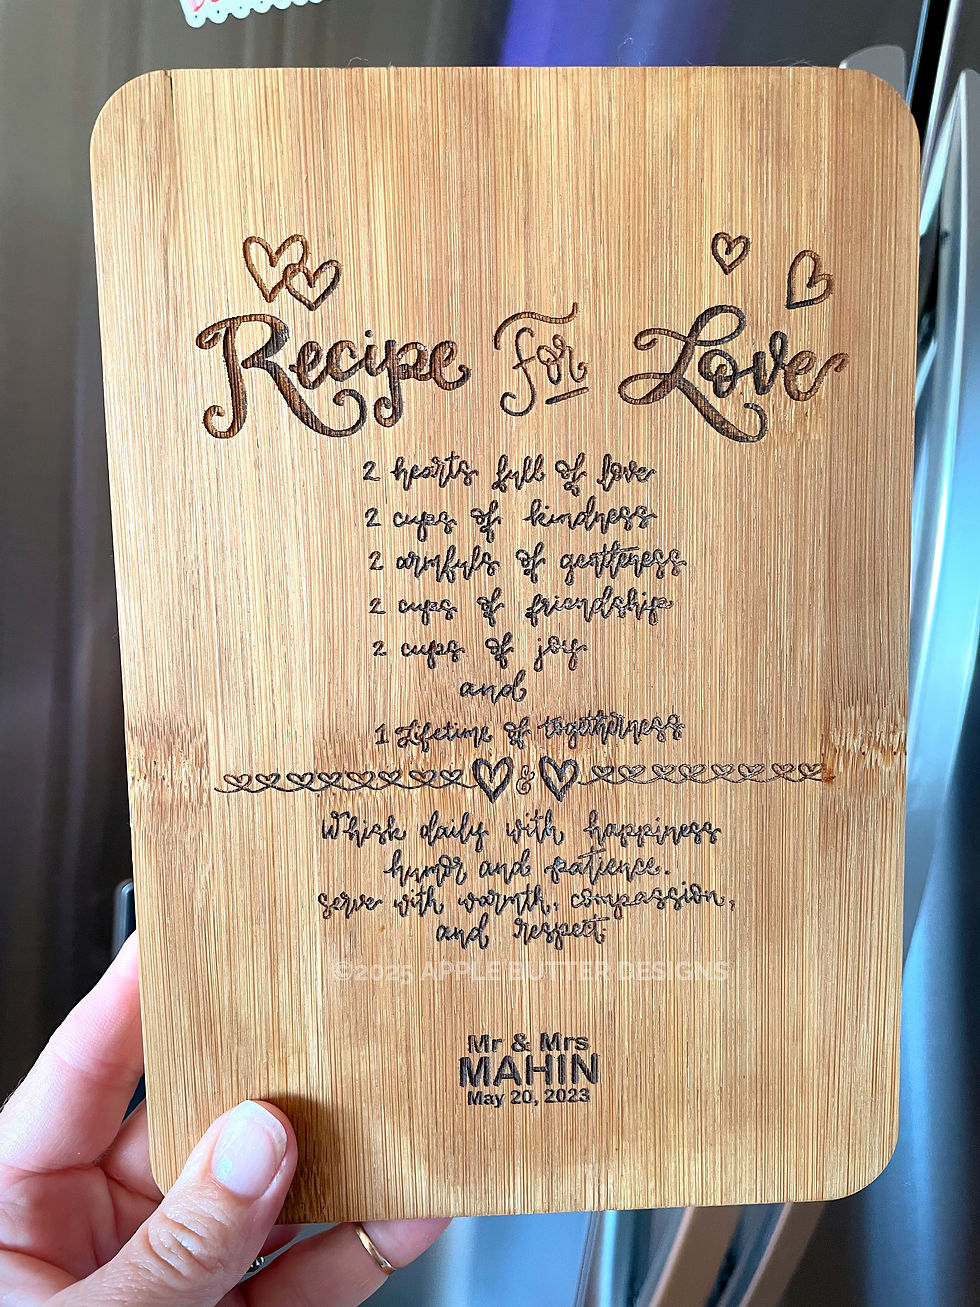 Recipe For Love
2 hearts full of love
2 cups of kindness
2 armfuls of gentleness
2 cups of friendship
2 cups of joy
and
1 Lifetime of togetherness
&
Whisk daily with happiness
humor and patience.
serve with warmth, compassion,
and respect
©2025 APPLE BUTTER DESIGNS
Mr & Mrs
MAHIN
May 20, 2023